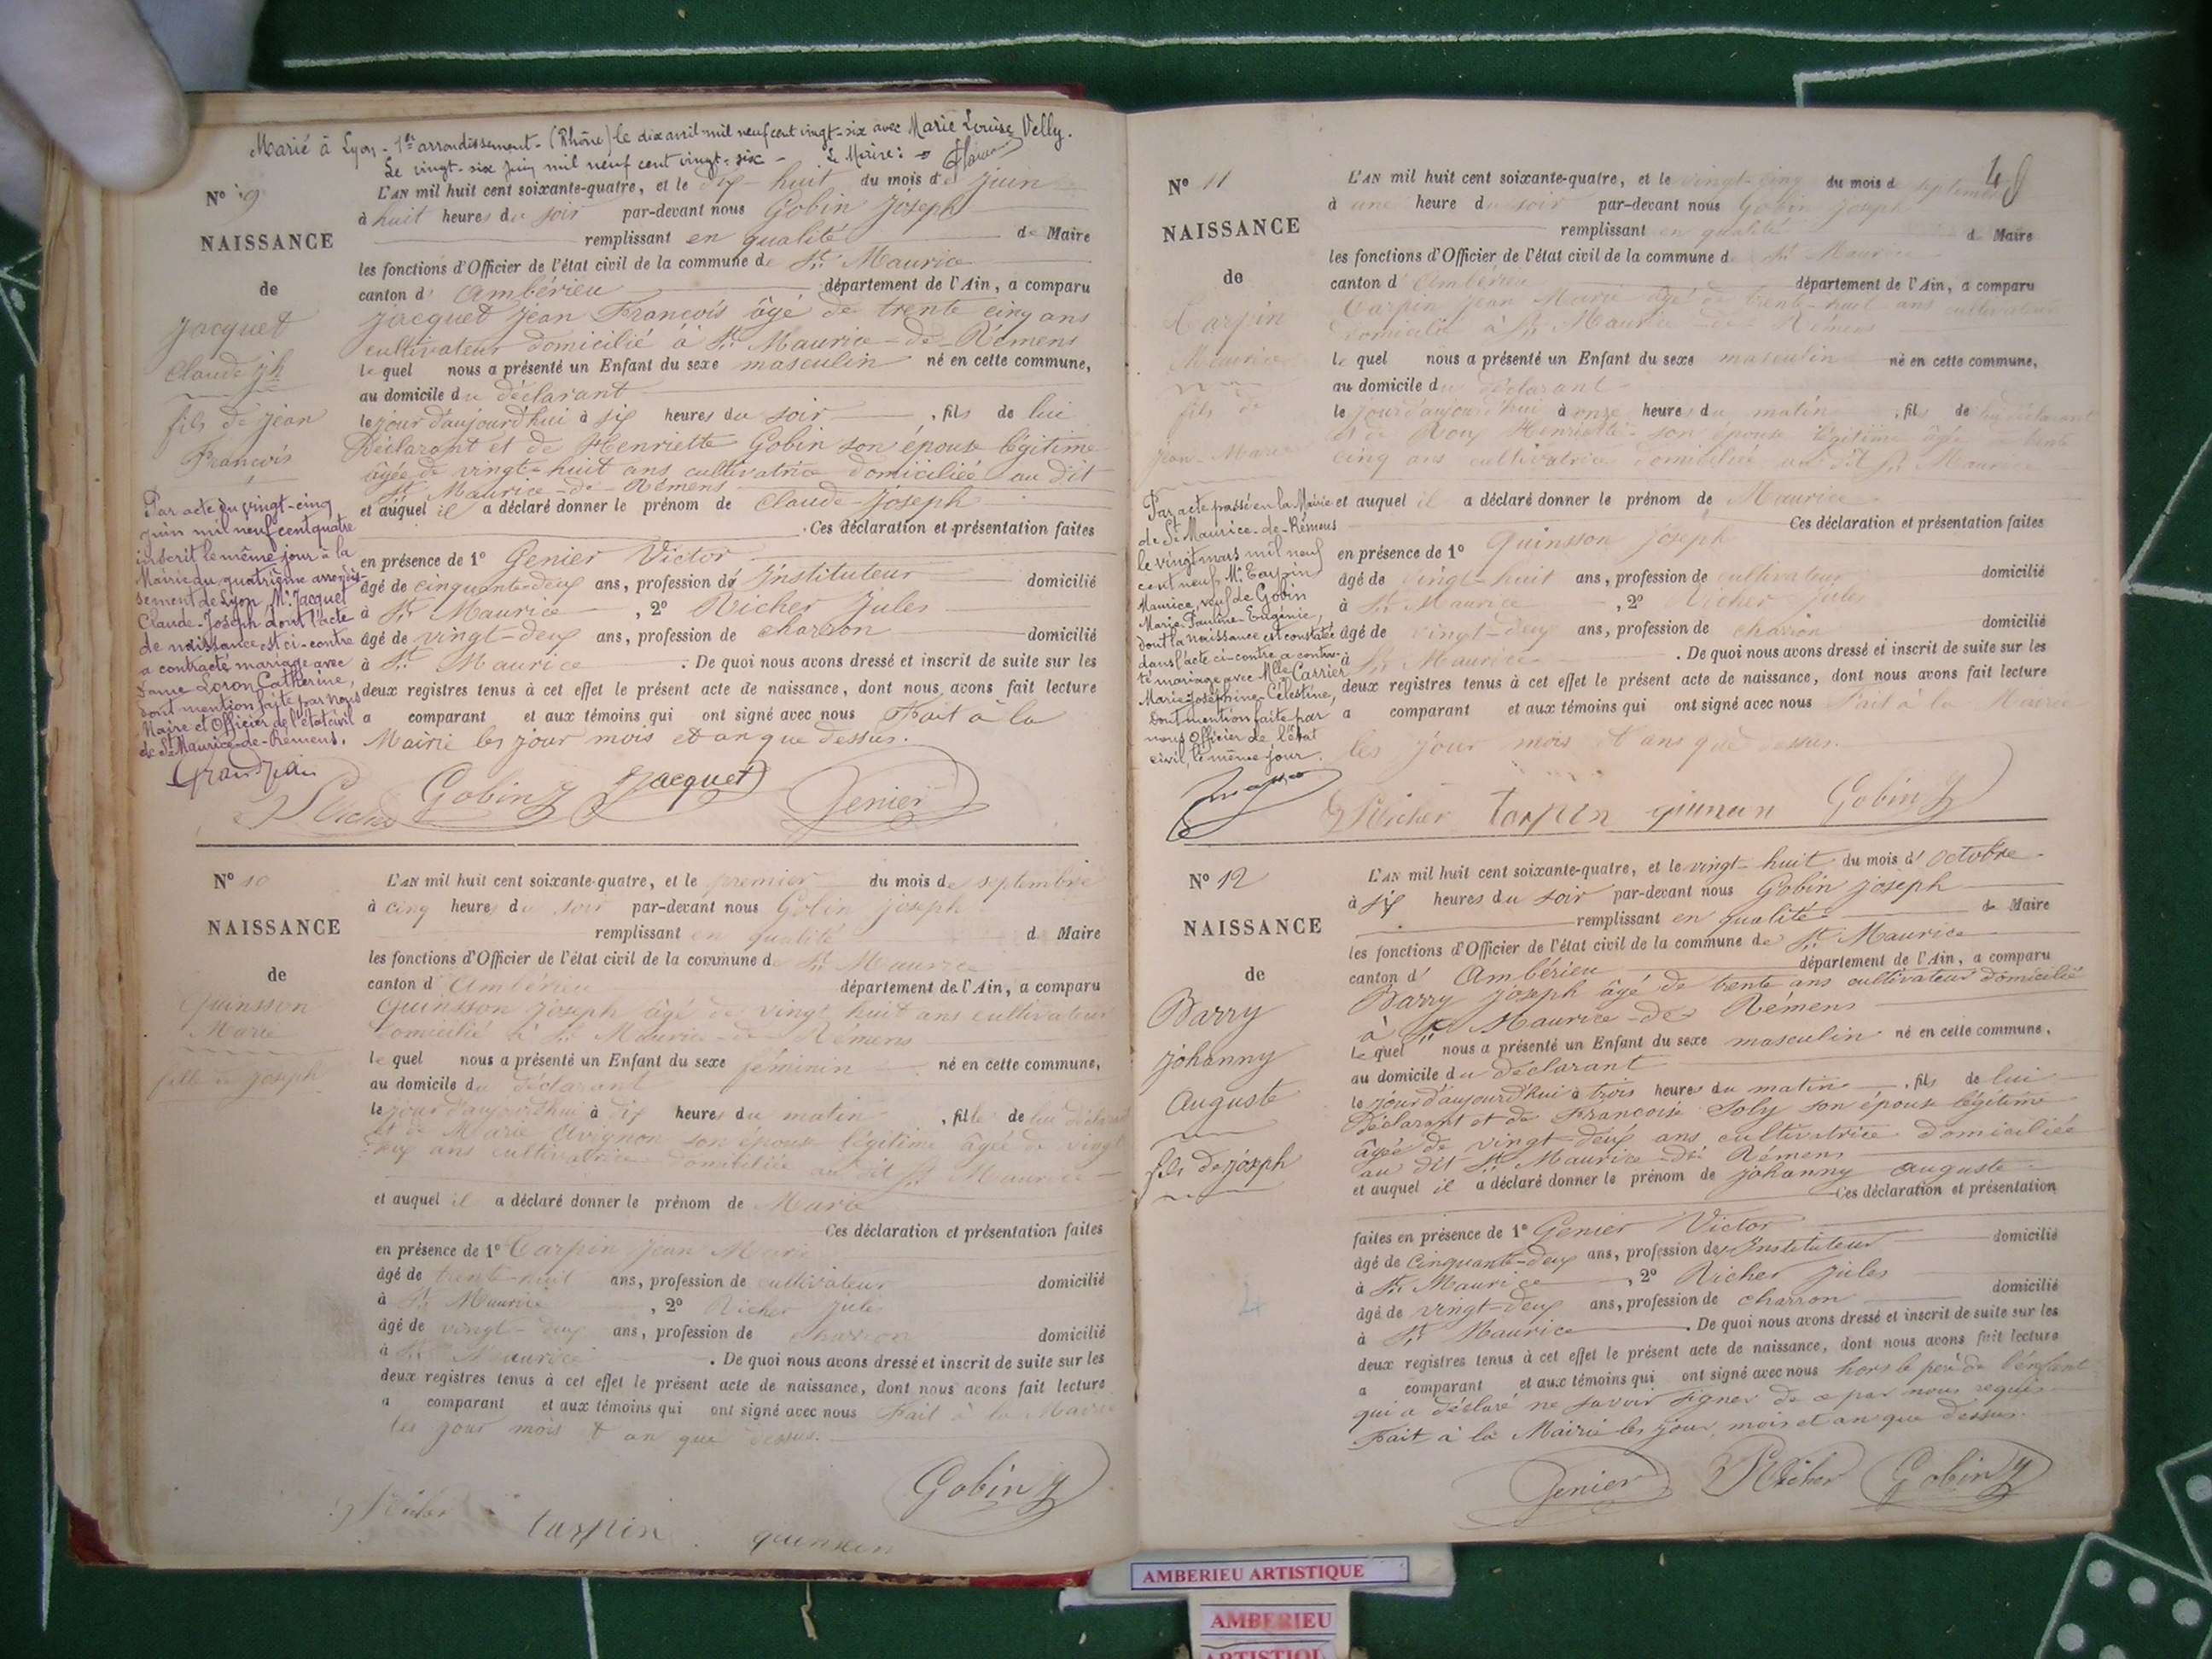 Marié à Lyon - 1er arrondissement - (Rhône) le dix avril mil neuf cent vingt-six avec Marie Louise Velly.
Le vingt-six juin mil neuf cent vingt-six - Le Maire:
N° 9
NAISSANCE
de
Jacquet
Claude Jh
fils de Jean
François
L'AN mil huit cent soixante-quatre, et le dix-huit du mois de juin
à huit heures du soir par-devant nous Gobin Joseph
remplissant en qualité de Maire
les fonctions d'Officier de l'état civil de la commune de St Maurice
canton d'Ambérieu département de l'Ain, a comparu
Jacquet Jean François âgé de trente cinq ans
cultivateur domicilié à St Maurice-de-Rémens
lequel nous a présenté un Enfant du sexe masculin né en cette commune,
au domicile du déclarant
le jour d'aujourd'hui à six heures du soir, fils de lui
Déclarant et de Henriette Gobin son épouse légitime
âgée de vingt-huit ans cultivatrice domiciliée au dit
St Maurice-de-Rémens
et auquel il a déclaré donner le prénom de Claude-Joseph
. Ces déclaration et présentation faites
en présence de 1° Genier Victor
âgé de cinquante-deux ans, profession de Instituteur domicilié
à St Maurice, 2° Richer Jules
âgé de vingt-deux ans, profession de charron domicilié
à St Maurice. De quoi nous avons dressé et inscrit de suite sur les
deux registres tenus à cet effet le présent acte de naissance, dont nous avons fait lecture
a comparant et aux témoins qui ont signé avec nous Fait à la
Mairie les jour mois et an que dessus.
Par acte du vingt-cinq
juin mil neuf cent quatre
inscrit le même jour à la
Mairie du quatrième arrondis-
sement de Lyon, Mr Jacquet
Claude-Joseph dont l'acte
de naissance est ci-contre
a contracté mariage avec
Dame Loron Catherine,
dont mention faite par nous
Maire et Officier de l'état civil
de St Maurice-de-Rémens.
Grandjean
J Richer Gobin J Jacquet Genier
N° 10
NAISSANCE
de
Quinsson
Marie
fille de Joseph
L'AN mil huit cent soixante-quatre, et le premier du mois de septembre
à cinq heures du soir par-devant nous Gobin Joseph
remplissant en qualité d Maire
les fonctions d'Officier de l'état civil de la commune d St Maurice
canton d'Ambérieu département de l'Ain, a comparu
Quinsson Joseph âgé de vingt huit ans cultivateur
domicilié à St Maurice-de-Rémens
lequel nous a présenté un Enfant du sexe féminin né en cette commune,
au domicile du déclarant
le jour d'aujourd'hui à dix heures du matin, fille de lui déclarant
et de Marie Avignon son épouse légitime âgée de vingt
deux ans cultivatrice domiciliée au dit St Maurice
et auquel il a déclaré donner le prénom de Marie
Ces déclaration et présentation faites
en présence de 1° Carpin Jean Marie
âgé de trente-huit ans, profession de cultivateur domicilié
à St Maurice, 2° Richer Jules
âgé de vingt-deux ans, profession de charron domicilié
à St Maurice. De quoi nous avons dressé et inscrit de suite sur les
deux registres tenus à cet effet le présent acte de naissance, dont nous avons fait lecture
a comparant et aux témoins qui ont signé avec nous Fait à la Mairie
les jour mois & an que dessus.
Gobin J
J Richer Carpin quinson
48
N° 11
NAISSANCE
de
Carpin
Maurice
fils de
Jean-Marie
L'AN mil huit cent soixante-quatre, et le vingt-cinq du mois d septembre
à une heure du soir par-devant nous Gobin Joseph
remplissant en qualité d Maire
les fonctions d'Officier de l'état civil de la commune d St Maurice
canton d'Ambérieu département de l'Ain, a comparu
Carpin Jean Marie âgé de trente-huit ans cultivateur
domicilié à St Maurice-de-Rémens
lequel nous a présenté un Enfant du sexe masculin né en cette commune,
au domicile du déclarant
le jour d'aujourd'hui à onze heures du matin, fils de lui déclarant
et de Roux Henriette son épouse légitime âgée trente
cinq ans cultivatrice domiciliée au dit St Maurice
et auquel il a déclaré donner le prénom de Maurice
Ces déclaration et présentation faites
en présence de 1° Quinsson Joseph
âgé de vingt-huit ans, profession de cultivateur domicilié
à St Maurice, 2° Richer Jules
âgé de vingt-deux ans, profession de charron domicilié
à St Maurice. De quoi nous avons dressé et inscrit de suite sur les
deux registres tenus à cet effet le présent acte de naissance, dont nous avons fait lecture
a comparant et aux témoins qui ont signé avec nous Fait à la Mairie
les jour mois et ans que dessus.
Par acte passé en la Mairie
de St Maurice-de-Rémens
le vingt mars mil neuf
cent neuf, Mr Carpin
Maurice, veuf de Gobin
Marie-Pauline-Eugénie,
dont la naissance est constatée
dans l'acte ci-contre a contrac-
té mariage avec Mlle Carrier
Marie-Joséphine-Célestine,
dont mention faite par
nous Officier de l'état
civil, le même jour.
J Richer Carpin quinson Gobin J
N° 12
NAISSANCE
de
Barry
Johanny
Auguste
fils de Joseph
L'AN mil huit cent soixante-quatre, et le vingt-huit du mois d'Octobre
à six heures du soir par-devant nous Gobin Joseph
remplissant en qualité de Maire
les fonctions d'Officier de l'état civil de la commune de St Maurice
canton d'Ambérieu département de l'Ain, a comparu
Barry Joseph âgé de trente ans cultivateur domicilié
à St Maurice-de-Rémens
lequel nous a présenté un Enfant du sexe masculin né en cette commune,
au domicile du déclarant
le jour d'aujourd'hui à trois heures du matin, fils de lui
Déclarant et de Françoise Soly son épouse légitime
âgée de vingt-deux ans cultivatrice domiciliée
au dit St Maurice-de-Rémens
et auquel il a déclaré donner le prénom de Johanny Auguste
Ces déclaration et présentation
faites en présence de 1° Genier Victor
âgé de Cinquante-deux ans, profession de Instituteur domicilié
à St Maurice, 2° Richer Jules
âgé de vingt-deux ans, profession de charron domicilié
à St Maurice. De quoi nous avons dressé et inscrit de suite sur les
deux registres tenus à cet effet le présent acte de naissance, dont nous avons fait lecture
a comparant et aux témoins qui ont signé avec nous hors le père de l'enfant
qui a déclaré ne savoir signer de ce par nous requis
Fait à la Mairie les jour, mois et an que dessus.
Genier J Richer Gobin J
AMBERIEU ARTISTIQUE
AMBERIEU
ARTISTIQUE